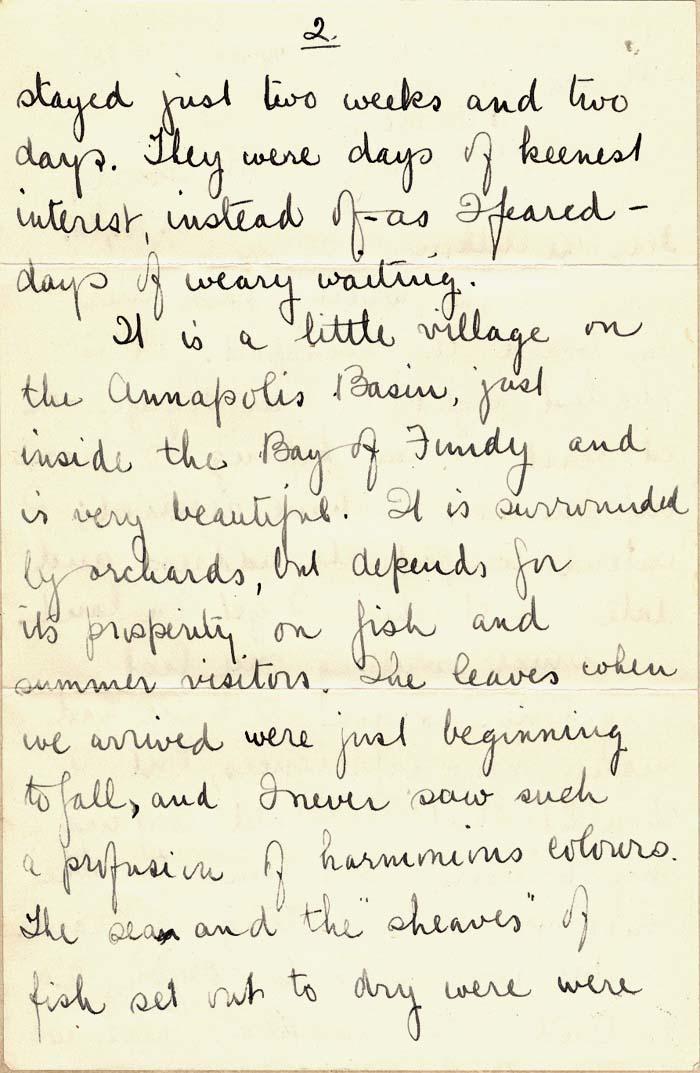 2.
stayed just two weeks and two
days. They were days of keenest
interest, instead of - as I feared -
days of weary waiting.
It is a little village on
the Annapolis Basin, just
inside the Bay of Fundy and
is very beautiful. It is surrounded
by orchards, but depends for
its prosperity on fish and
summer visitors. The leaves when
we arrived were just beginning
to fall, and I never saw such
a profusion of harmonious colours.
The sea and the "sheaves" of
fish set out to dry were were